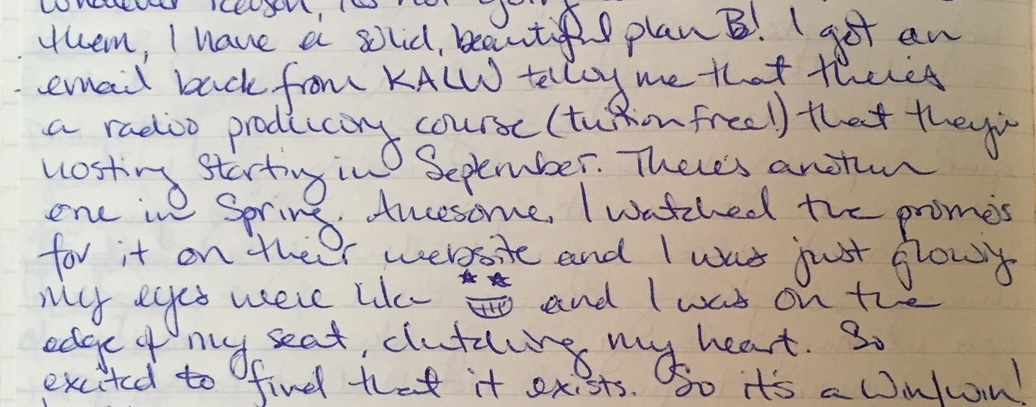 whatever reason, it's not going
them, I have a solid, beautiful plan B! I got an
email back from KALW telling me that there's
a radio producing course (tuition free!) that they're
hosting starting in September. There's another
one in Spring. Awesome. I watched the promo's
for it on their website and I was just glowing
my eyes were like and I was on the
edge of my seat, clutching my heart. So
excited to find that it exists. So it's a Win/win!